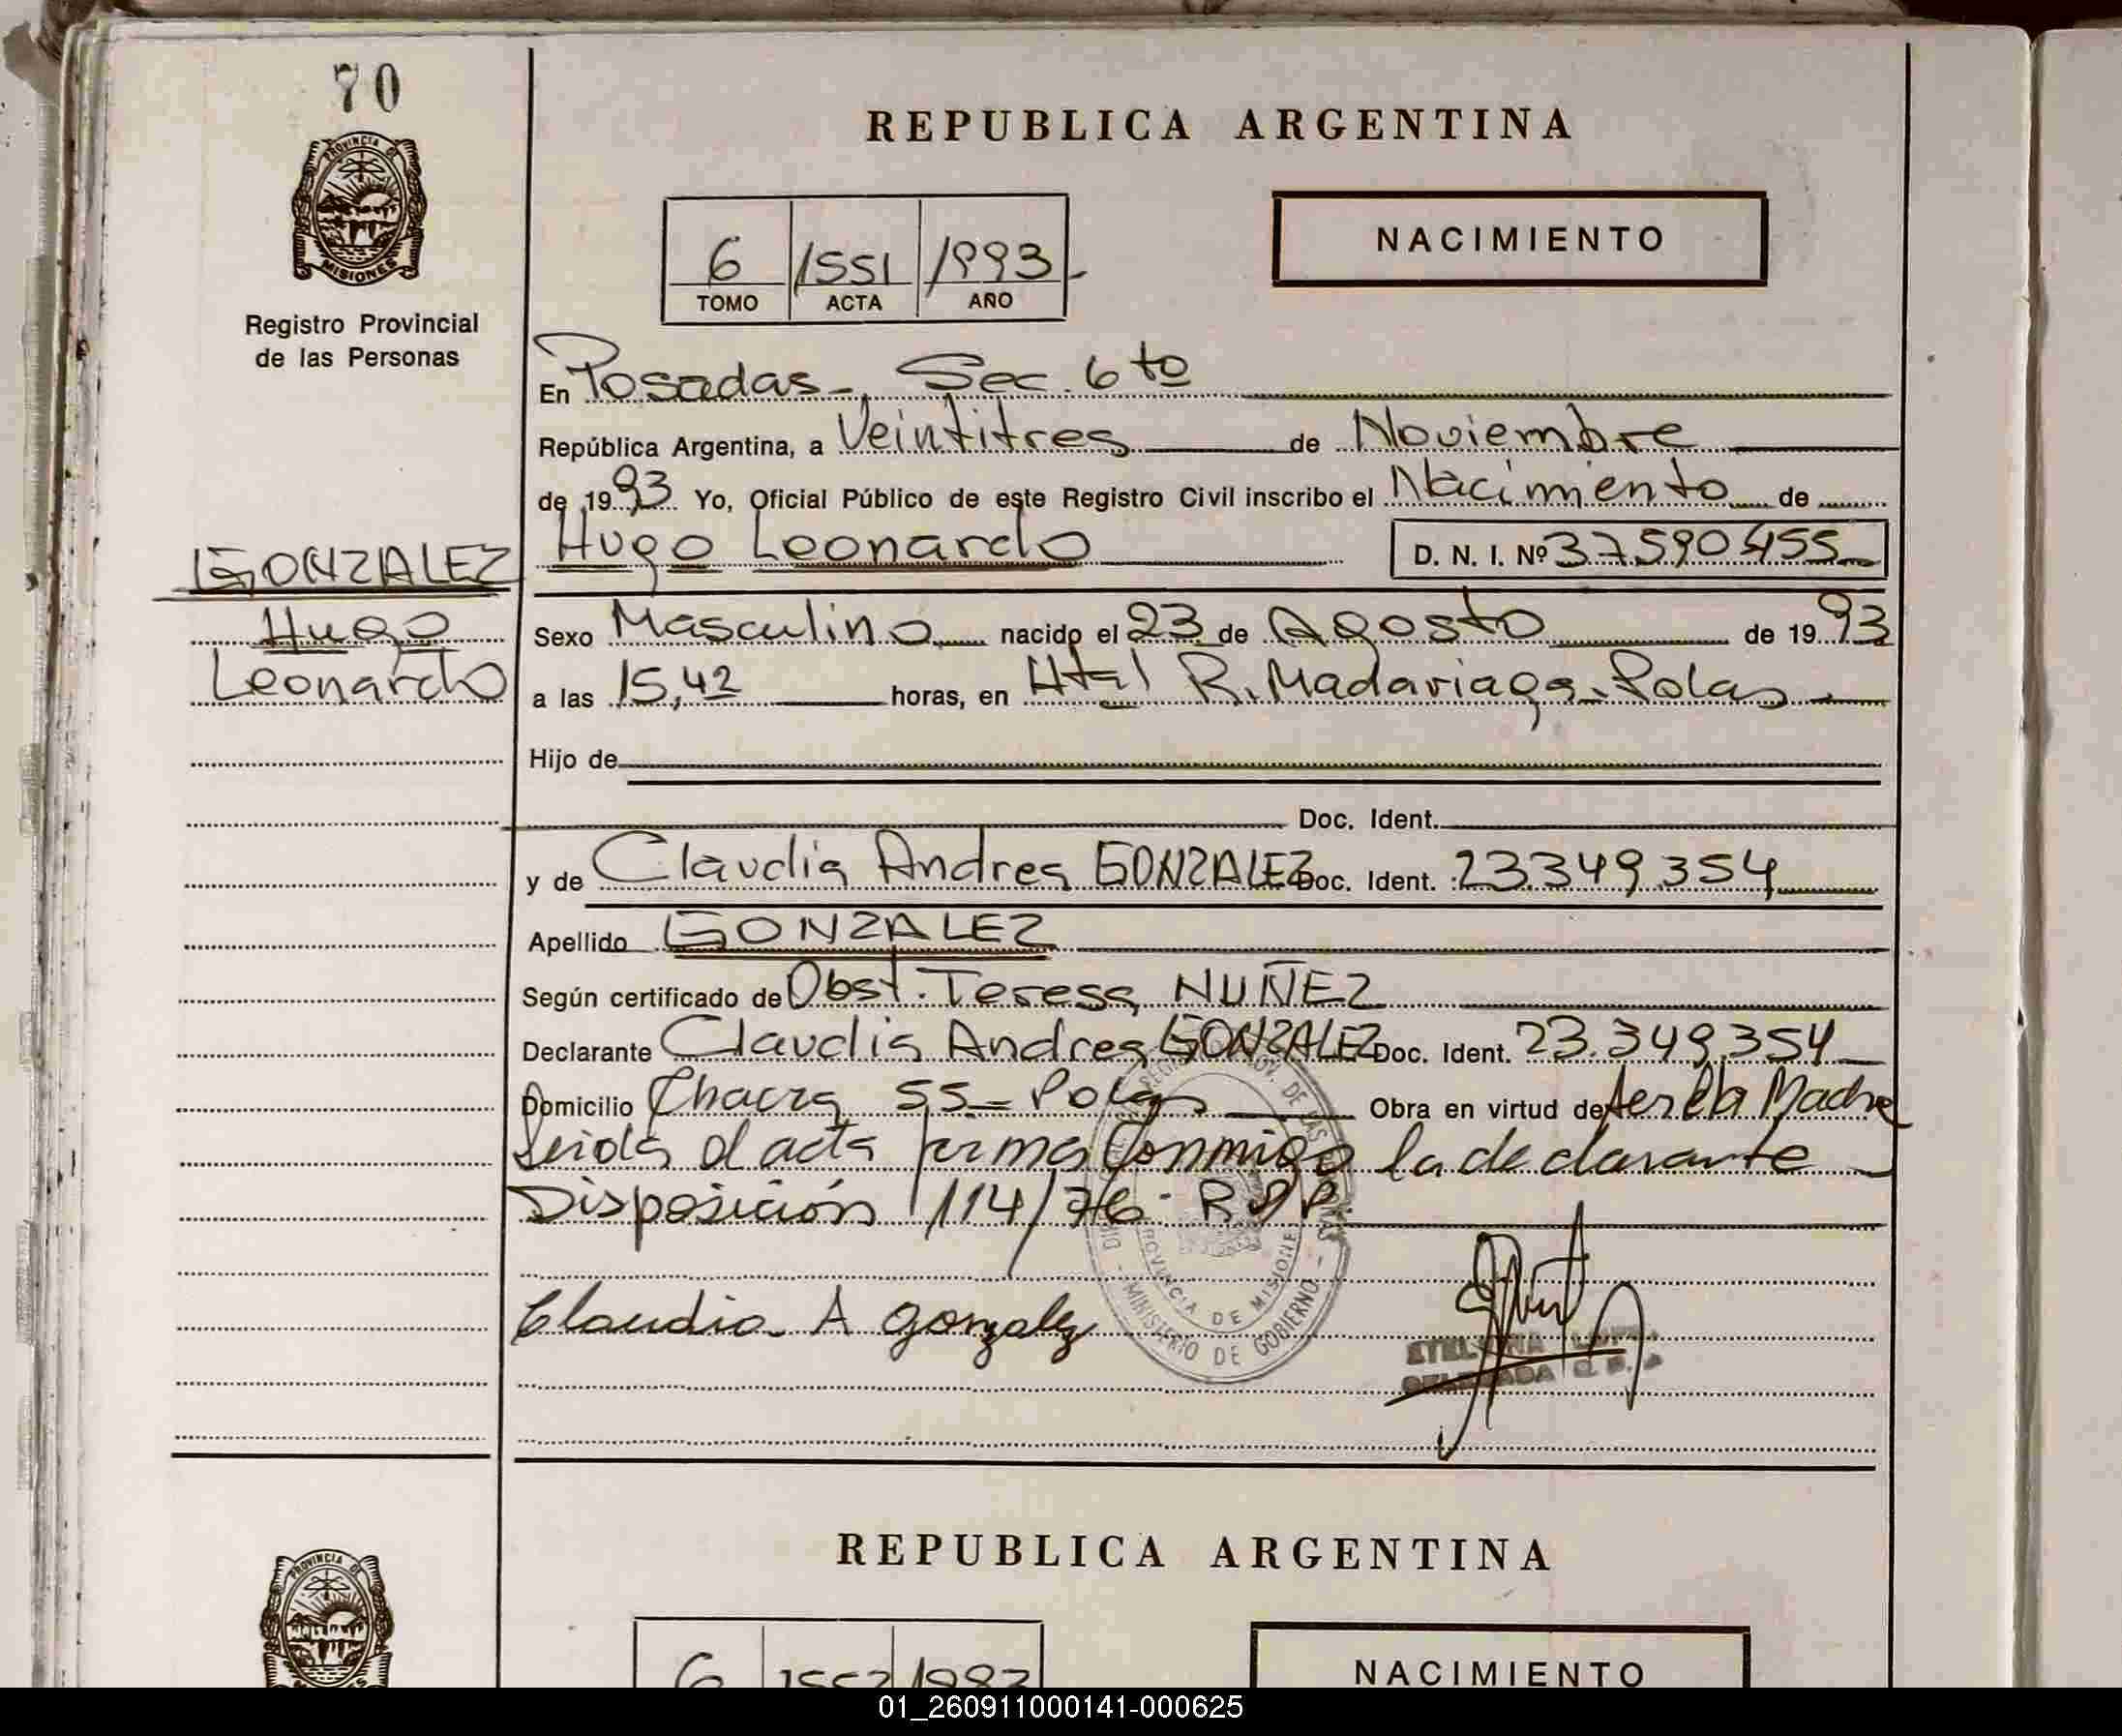 70
REPUBLICA ARGENTINA
PROVINCIA DE
MISIONES
Registro Provincial
de las Personas
6 1551 1993
TOMO ACTA AÑO
NACIMIENTO
En Posadas - Sec. 6to
República Argentina, a Veintitres de Noviembre
de 1993 Yo, Oficial Público de este Registro Civil inscribo el Nacimiento de
GONZALEZ
Hugo
Leonardo
Hugo Leonardo D. N. I. Nº 37590455
Sexo Masculino nacido el 23 de Agosto de 1993
a las 15,42 horas, en Htal R. Madariaga - Pdas
Hijo de
Doc. Ident.
y de Claudia Andrea GONZALEZ Doc. Ident. 23.349.354
Apellido GONZALEZ
Según certificado de Obst. Teresa NUÑEZ
Declarante Claudia Andrea GONZALEZ Doc. Ident. 23.349.354
Domicilio Chacra 55 - Pdas Obra en virtud de ser la Madre
Leida el acta firma conmigo la declarante
Disposición 114/76 - RPP
Claudia A gonzalez
PROVINCIA DE MISIONES
MINISTERIO DE GOBIERNO
REPUBLICA ARGENTINA
PROVINCIA DE
6 1552 1993
NACIMIENTO
01_260911000141-000625